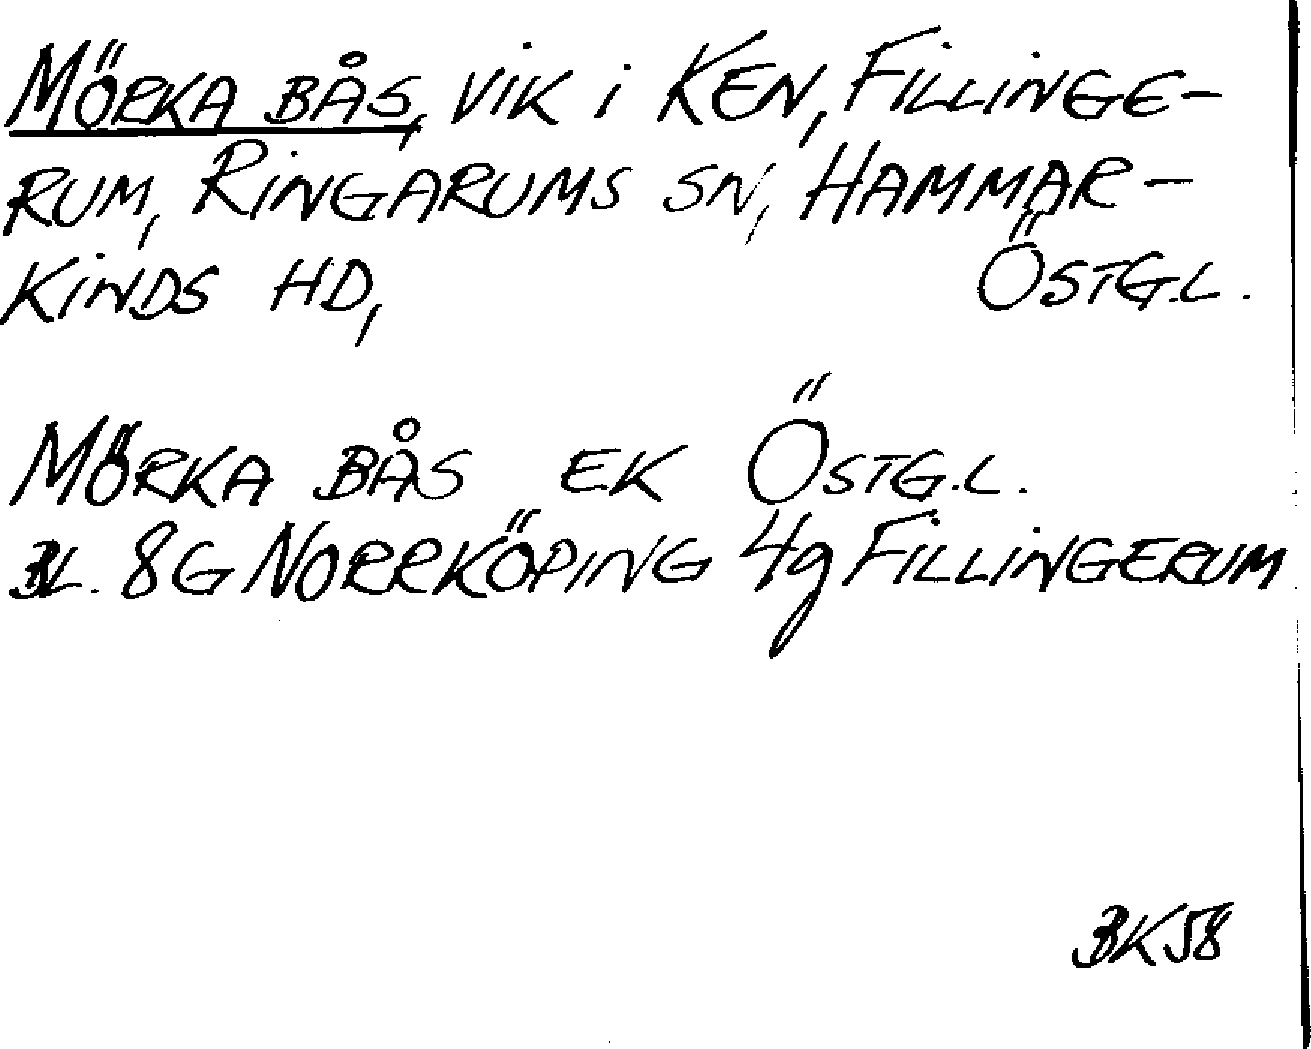 MÖRKA BÅS, VIK i KEN, FILLINGE-
RUM, RINGARUMS SN, HAMMAR-
KINDS HD, ÖSTG.L.
MÖRKA BÅS EK ÖSTG.L.
BL. 8G NORRKÖPING 4g FILLINGERUM
BK58